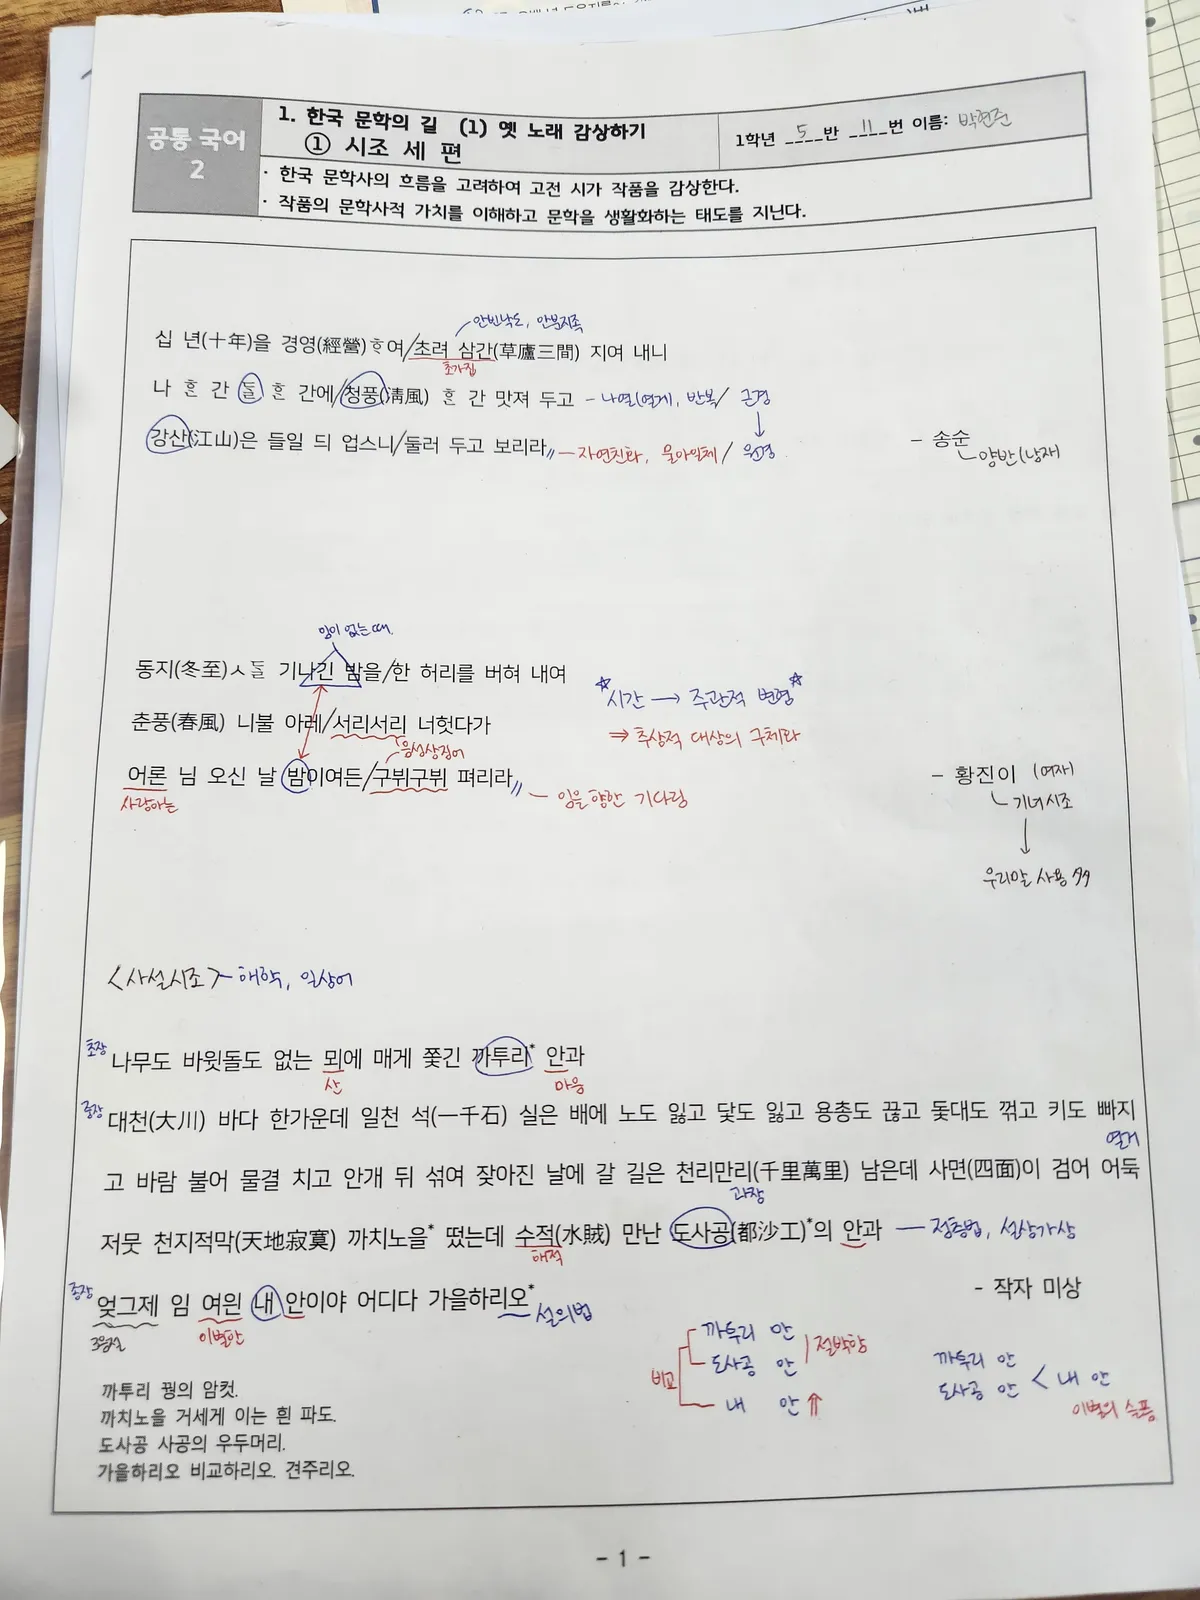 공통 국어
2
1. 한국 문학의 길 (1) 옛 노래 감상하기
① 시조 세 편
1학년 5반 11번 이름: 박현준
· 한국 문학사의 흐름을 고려하여 고전 시가 작품을 감상한다.
· 작품의 문학사적 가치를 이해하고 문학을 생활화하는 태도를 지닌다.
안빈낙도, 안분지족
십 년(十年)을 경영(經營)ᄒᆞ여/초려 삼간(草廬三間) 지여 내니
초가집
나 ᄒᆞᆫ 간 ᄃᆞᆯ ᄒᆞᆫ 간에/청풍(淸風) ᄒᆞᆫ 간 맛져 두고 - 나열(열거, 반복/ 근경
↓
강산(江山)은 들일 듸 업스니/둘러 두고 보리라〃 - 자연친화, 물아일체 / 원경
- 송순
양반(남재)
임이 없는 때.
동지(冬至)ㅅᄃᆞᆯ 기나긴 밤을/한 허리를 버혀 내여
☆시간 → 주관적 변형☆
춘풍(春風) 니불 아레/서리서리 너헛다가
⇒ 추상적 대상의 구체화
음성상징어
어론 님 오신 날 밤이여든/구뷔구뷔 펴리라〃 - 임을 향한 기다림
사랑하는
- 황진이 (여자)
기녀시조
↓
우리말 사용
<사설시조> - 해학, 일상어
초장 나무도 바윗돌도 없는 뫼에 매게 쫓긴 까투리* 안과
산 마음
중장 대천(大川) 바다 한가운데 일천 석(一千石) 실은 배에 노도 잃고 닻도 잃고 용총도 끊고 돛대도 꺾고 키도 빠지
열거
고 바람 불어 물결 치고 안개 뒤 섞여 잦아진 날에 갈 길은 천리만리(千里萬里) 남은데 사면(四面)이 검어 어둑
과장
저뭇 천지적막(天地寂寞) 까치노을* 떴는데 수적(水賊) 만난 도사공(都沙工)*의 안과 - 점층법, 설상가상
해적
- 작자 미상
종장 엊그제 임 여읜 내 안이야 어디다 가을하리오* 설의법
이별한
비교
까투리 안
도사공 안
절박함
내 안⇑
까투리 안
도사공 안 < 내 안
이별의 슬픔
까투리 꿩의 암컷.
까치노을 거세게 이는 흰 파도.
도사공 사공의 우두머리.
가을하리오 비교하리오. 견주리오.
- 1 -